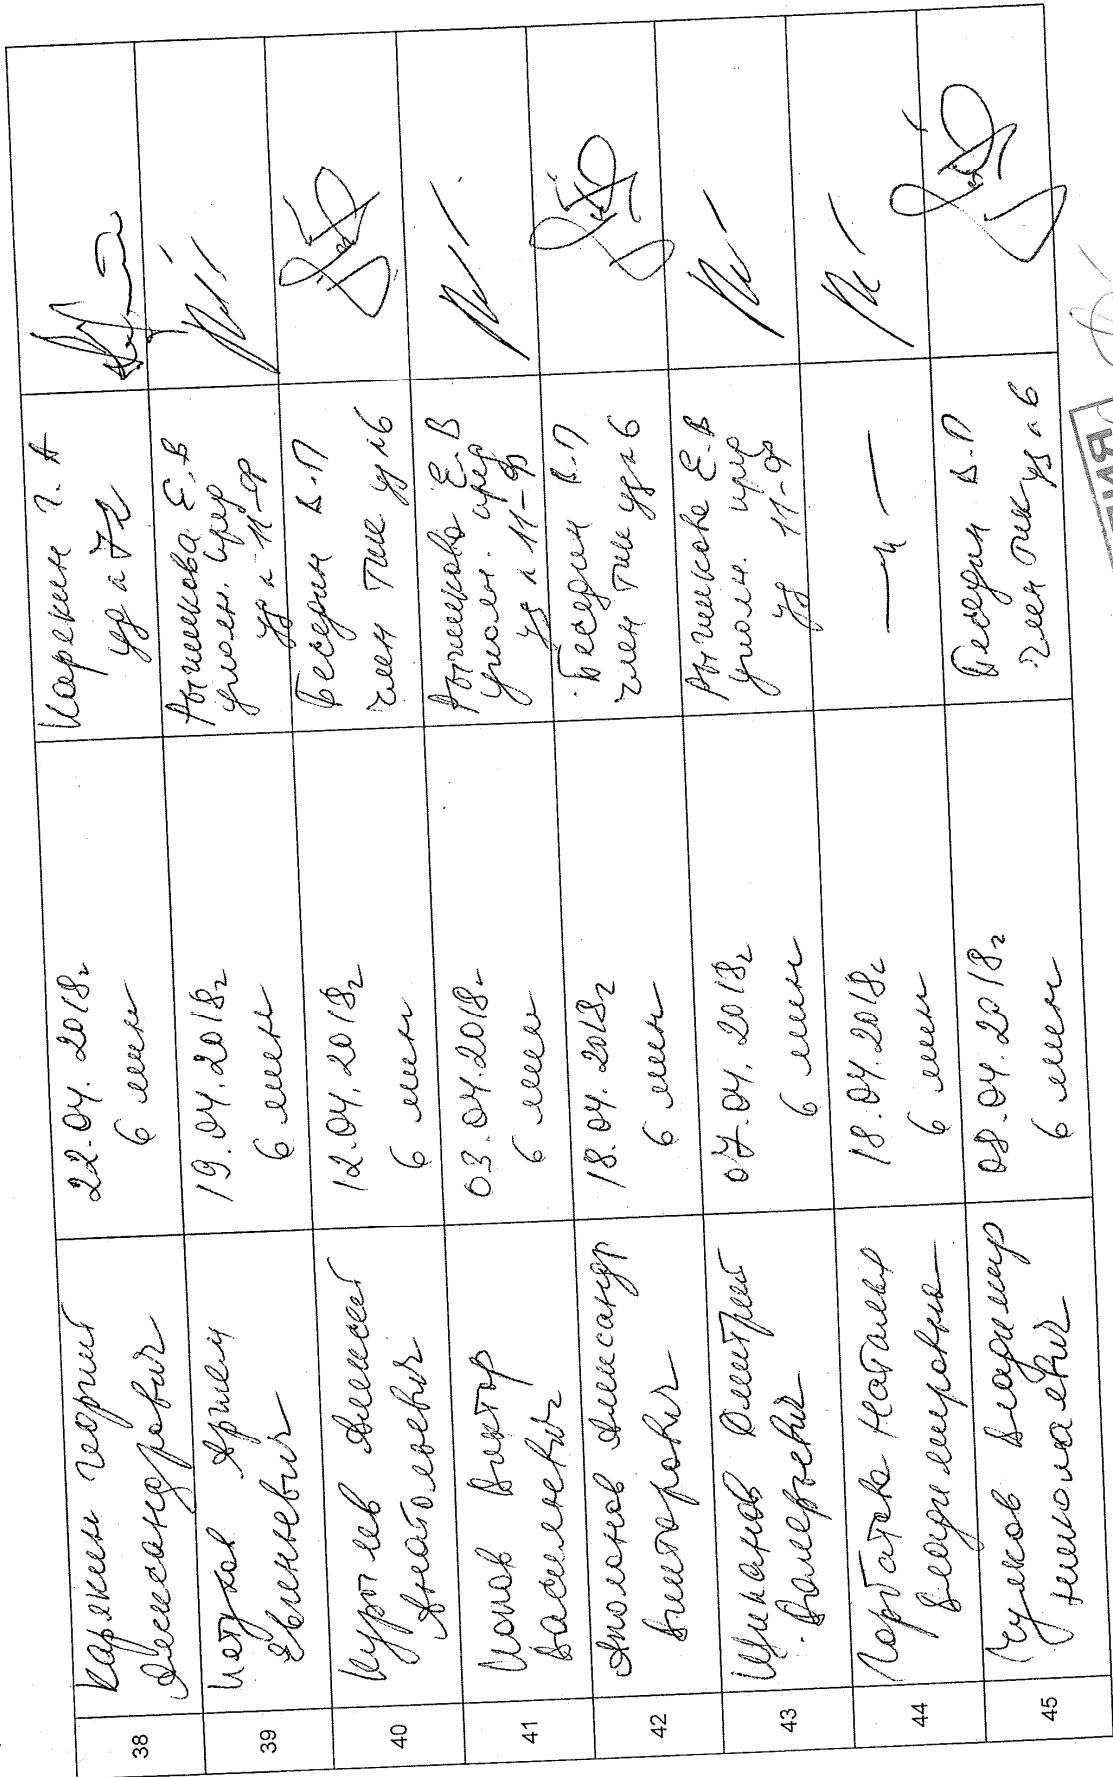 38
Карякин Георгий
Александрович
22.04.2018г
6 мин
Карякин Г.А
уд № 7с
39
Петухов Артем
Евгеньевич
19.04.2018г
6 мин
Е.В
уполн. пред
уд № 11-ф
40
Алексей
Анатольевич
12.04.2018г
6 мин
Беседин В.П
член ТИК уд №6
41
Попов Виктор
Васильевич
03.04.2018г
6 мин
Е.В
уполн. пред
уд № 11-ф
42
Аполонов Александр
Викторович
18.04.2018г
6 мин
Беседин В.П
член ТИК уд №6
43
Дмитрий
Валерьевич
07.04.2018г
6 мин
Е.В
уполн. пред
уд 11-ф
44
Наталья
Владимировна
18.04.2018г
6 мин
— " —
45
Чулков Владимир
Николаевич
08.04.2018г
6 мин
Беседин В.П
член ТИК уд №6